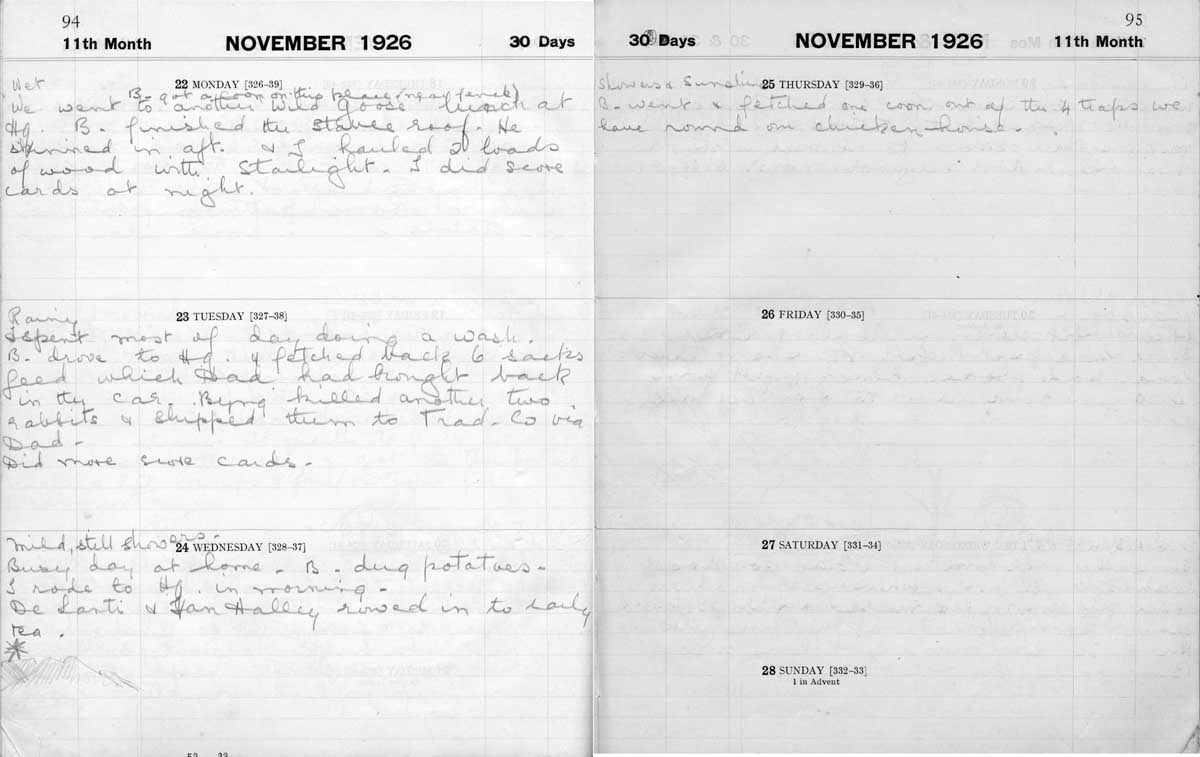 94
11th Month NOVEMBER 1926 30 Days
Wet
22 MONDAY [326–39]
B. got a coon on this place (near fence)
We went to another wild goose lunch at
Hg. B. finished the stable roof. He
skinned in aft. & I hauled 2 loads
of wood with Starlight. I did score
cards at night.
Rainy
23 TUESDAY [327–38]
I spent most of day doing a wash.
B. drove to Hg. & fetched back 6 sacks
feed which Dad had brought back
in the car. Byng killed another two
rabbits & shipped them to Trad. Co via
Dad -
Did more score cards -
Mild, still showers -
24 WEDNESDAY [328–37]
Busy day at home - B. dug potatoes -
I rode to Hg. in morning -
De Larti & Ian Halley rowed in to early
tea.
*
95
30 Days NOVEMBER 1926 11th Month
Showers & Sunshine
25 THURSDAY [329–36]
B. went & fetched coon out of the 4 traps we
have round our chicken-house.
26 FRIDAY [330–35]
27 SATURDAY [331–34]
28 SUNDAY [332–33]
1 in Advent